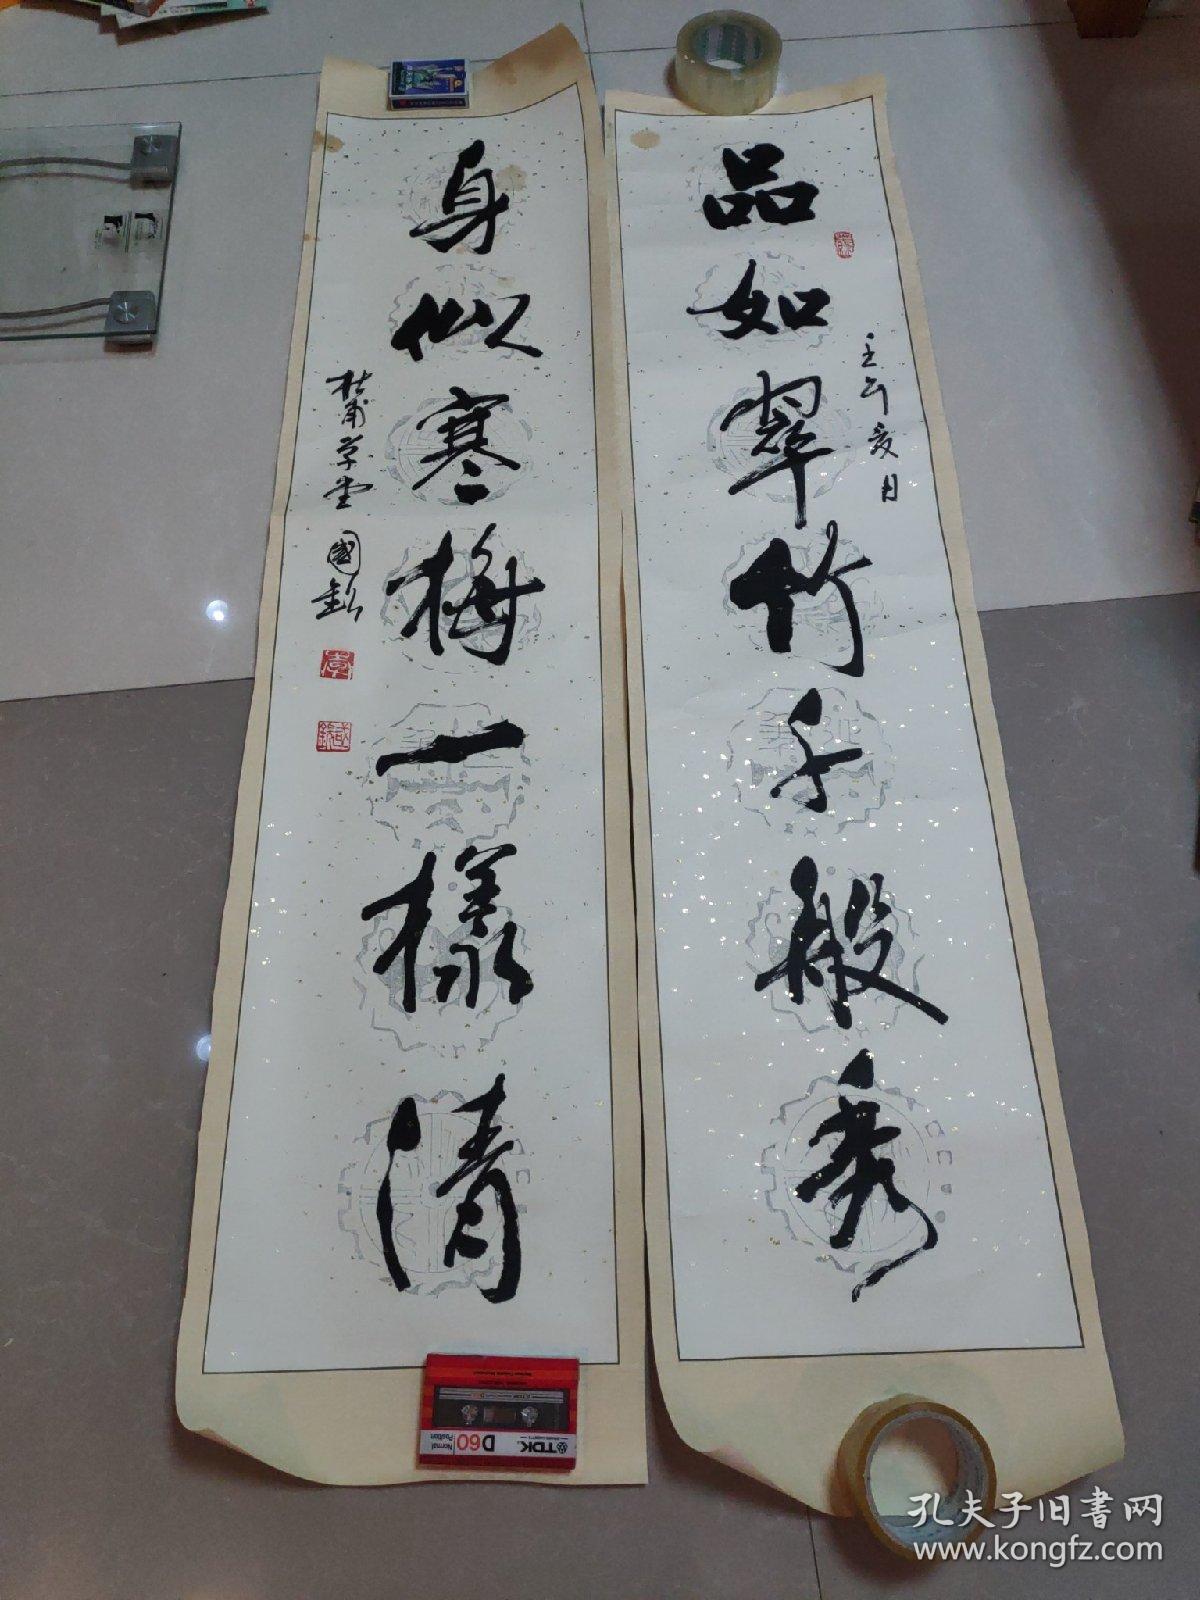 品如翠竹千般秀
壬午夏月
身似寒梅一樣清
杜甫草堂 國欽
TDK
D60
Normal
Position
孔夫子旧书网
www.kongfz.com